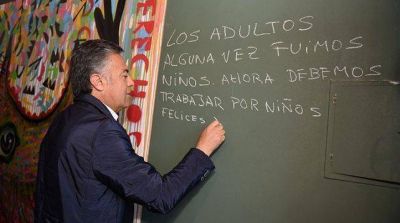 DERECHOS
LOS ADULTOS
ALGUNA VEZ FUIMOS
NIÑOS. AHORA DEBEMOS
TRABAJAR POR NIÑOS
FELICES